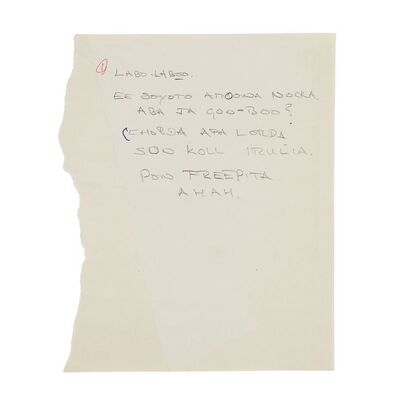 ①
LABO-LABOO.
EE BOYOTO AMOOWA NOCKA.
ABA JA GOO-BOO?
CHORDA APA LORDA
SON KOLL ITRULIA.
POW FREEPITA
AHAH.